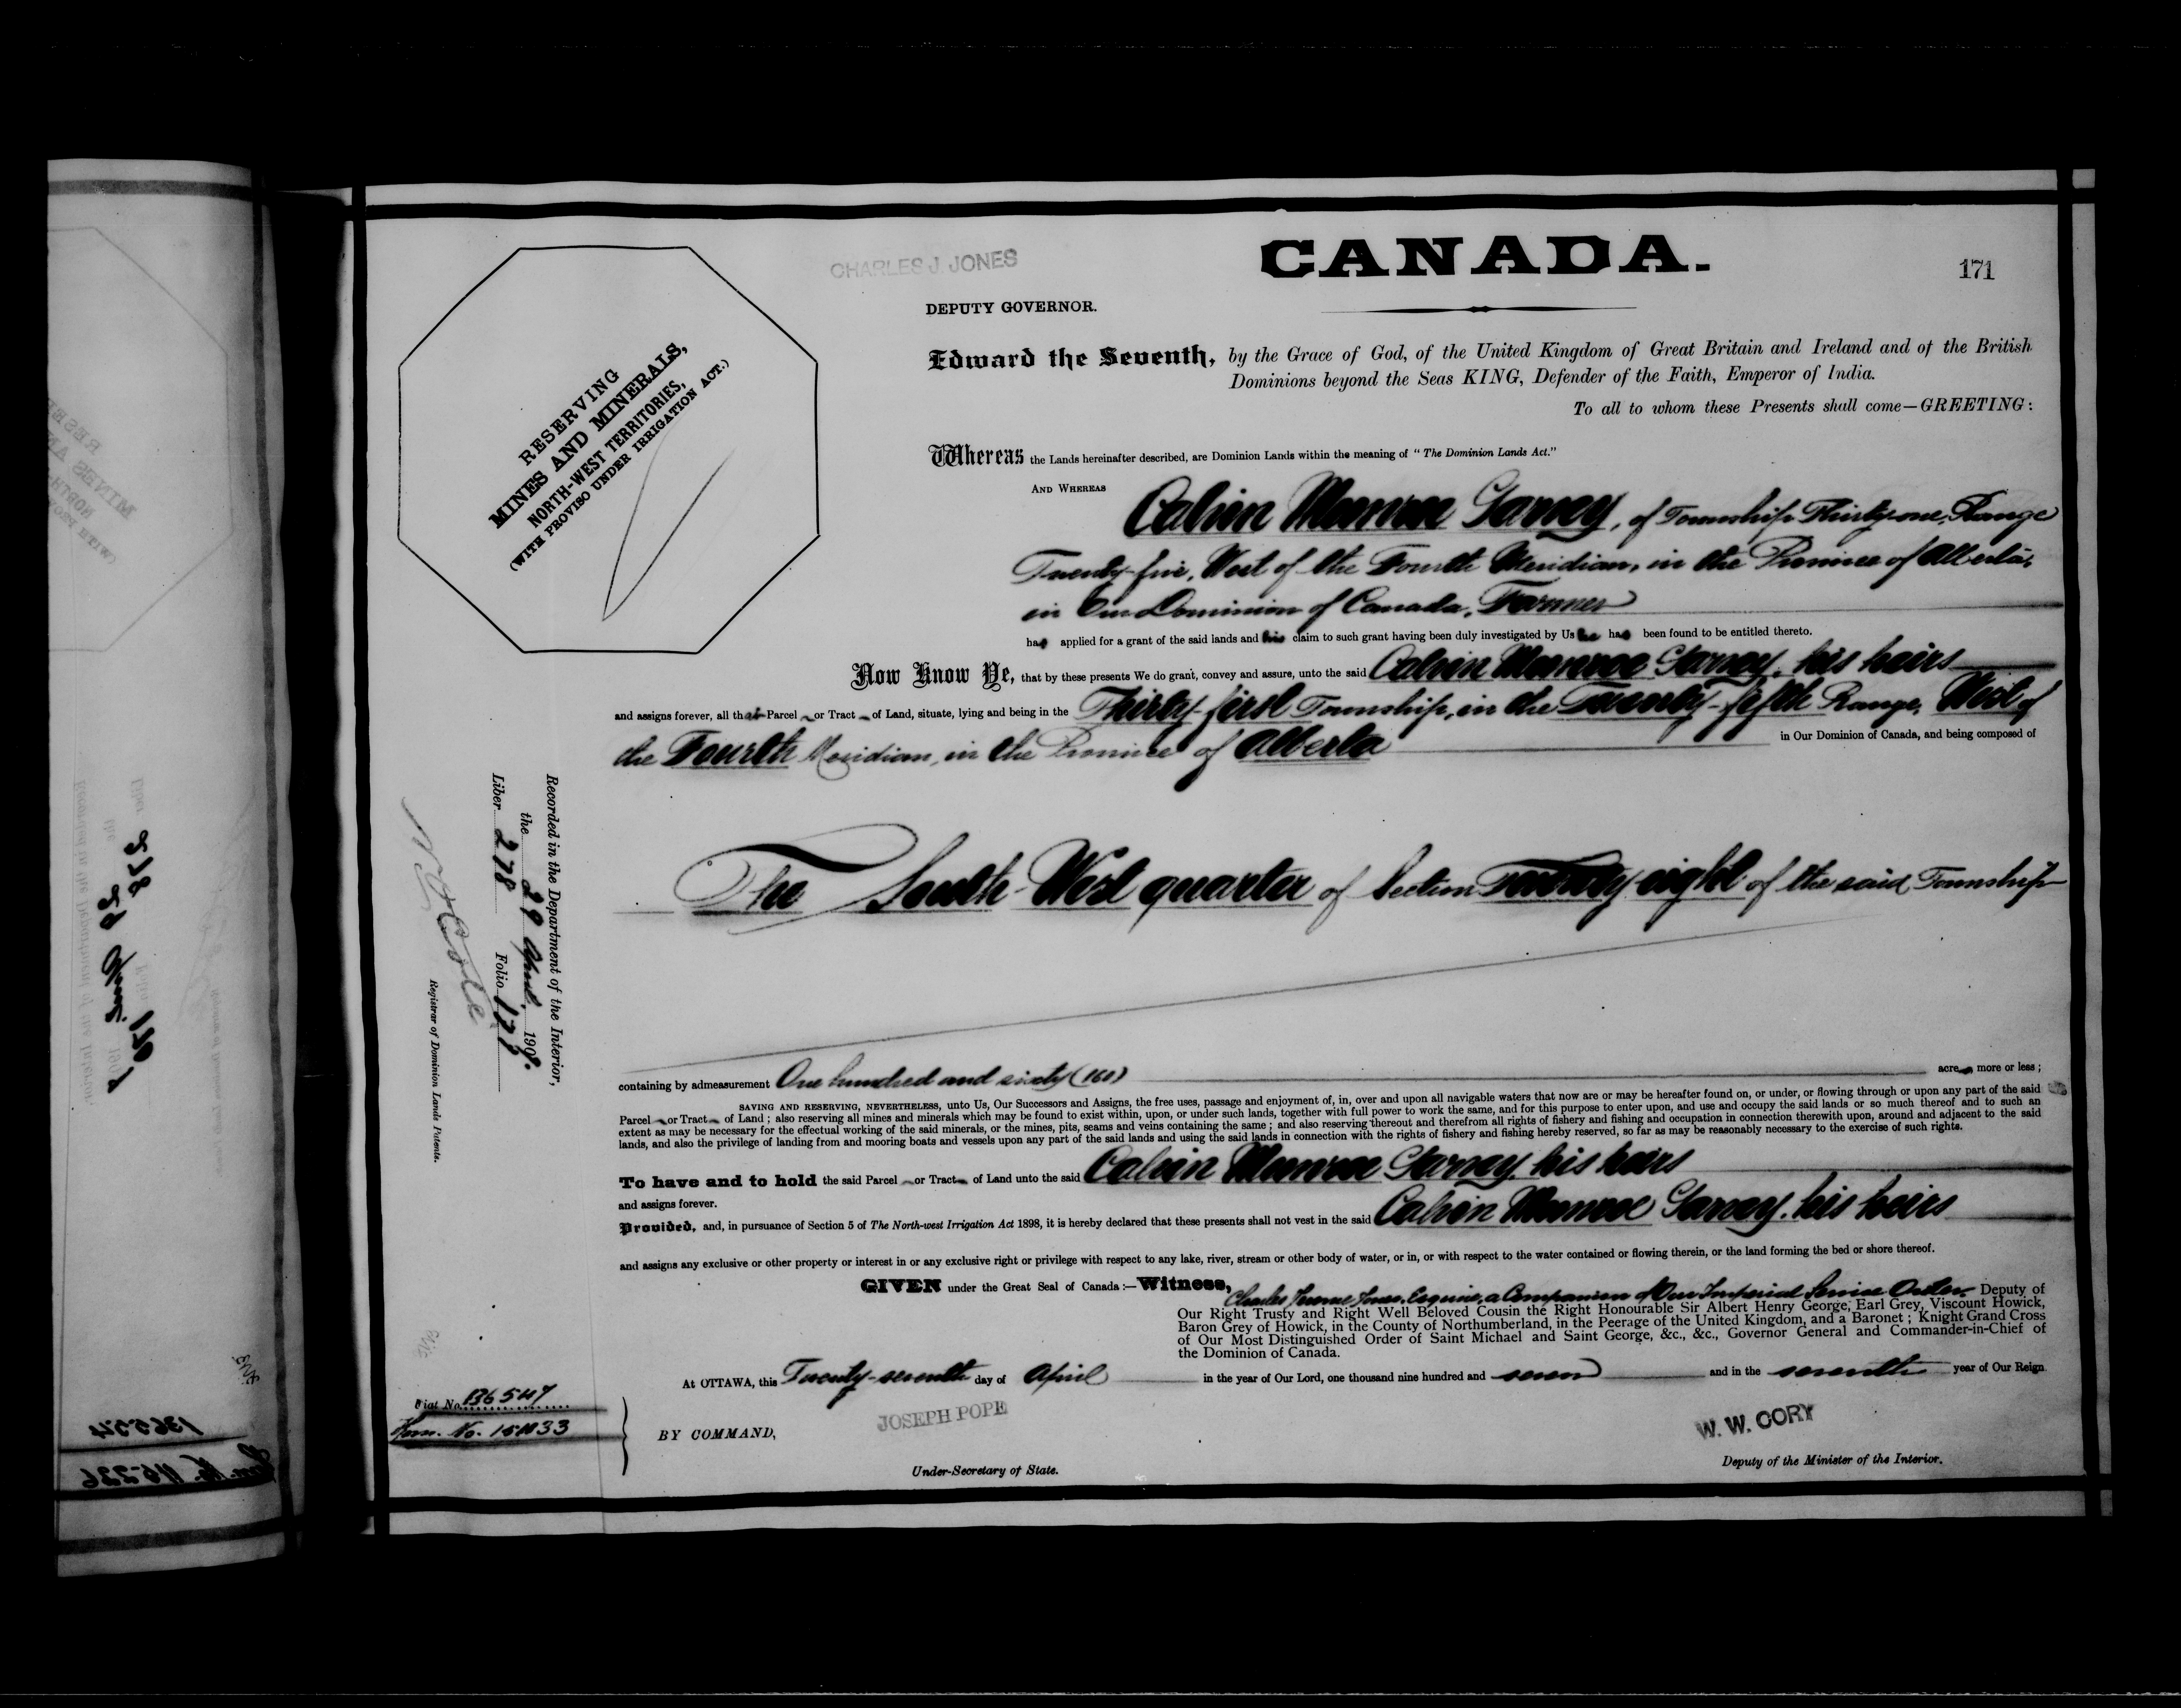 CHARLES J. JONES
CANADA.
171
DEPUTY GOVERNOR.
RESERVING
MINES AND MINERALS,
NORTH-WEST TERRITORIES,
(WITH PROVISO UNDER IRRIGATION ACT.)
Edward the Seventh, by the Grace of God, of the United Kingdom of Great Britain and Ireland and of the British
Dominions beyond the Seas KING, Defender of the Faith, Emperor of India.
To all to whom these Presents shall come—GREETING:
Whereas the Lands hereinafter described, are Dominion Lands within the meaning of "The Dominion Lands Act."
AND WHEREAS Calvin Monroe Garvey, of Township Thirty-one, Range
Twenty-five, West of the Fourth Meridian, in the Province of Alberta,
in Our Dominion of Canada, Farmer
has applied for a grant of the said lands and his claim to such grant having been duly investigated by Us he has been found to be entitled thereto.
Now Know Ye, that by these presents We do grant, convey and assure, unto the said Calvin Monroe Garvey, his heirs
and assigns forever, all that Parcel or Tract of Land, situate, lying and being in the Thirty-first Township, in the Twenty-fifth Range, West of
the Fourth Meridian, in the Province of Alberta in Our Dominion of Canada, and being composed of
The South-West quarter of Section Twenty-eight of the said Township
containing by admeasurement One hundred and sixty (160) acres more or less;
SAVING AND RESERVING, NEVERTHELESS, unto Us, Our Successors and Assigns, the free uses, passage and enjoyment of, in, over and upon all navigable waters that now are or may be hereafter found on, or under, or flowing through or upon any part of the said
Parcel or Tract of Land; also reserving all mines and minerals which may be found to exist within, upon, or under such lands, together with full power to work the same, and for this purpose to enter upon, and use and occupy the said lands or so much thereof and to such an
extent as may be necessary for the effectual working of the said minerals, or the mines, pits, seams and veins containing the same; and also reserving thereout and therefrom all rights of fishery and fishing and occupation in connection therewith upon, around and adjacent to the said
lands, and also the privilege of landing from and mooring boats and vessels upon any part of the said lands and using the said lands in connection with the rights of fishery and fishing hereby reserved, so far as may be reasonably necessary to the exercise of such rights.
To have and to hold the said Parcel or Tract of Land unto the said Calvin Monroe Garvey, his heirs
and assigns forever.
Provided, and, in pursuance of Section 5 of The North-west Irrigation Act 1898, it is hereby declared that these presents shall not vest in the said Calvin Monroe Garvey, his heirs
and assigns any exclusive or other property or interest in or any exclusive right or privilege with respect to any lake, river, stream or other body of water, or in, or with respect to the water contained or flowing therein, or the land forming the bed or shore thereof.
GIVEN under the Great Seal of Canada:—Witness,
Charles Jerome Jones, Esquire, a Companion of Our Imperial Service Order, Deputy of
Our Right Trusty and Right Well Beloved Cousin the Right Honourable Sir Albert Henry George, Earl Grey, Viscount Howick,
Baron Grey of Howick, in the County of Northumberland, in the Peerage of the United Kingdom, and a Baronet; Knight Grand Cross
of Our Most Distinguished Order of Saint Michael and Saint George, &c., &c., Governor General and Commander-in-Chief of
the Dominion of Canada.
At OTTAWA, this Twenty-seventh day of April in the year of Our Lord, one thousand nine hundred and seven and in the seventh year of Our Reign.
JOSEPH POPE
W. W. CORY
BY COMMAND,
Under-Secretary of State.
Deputy of the Minister of the Interior.
Recorded in the Department of the Interior,
the 29 April 1907.
Liber 278 Folio 171
Registrar of Dominion Lands Patents.
Fiat No. 136547